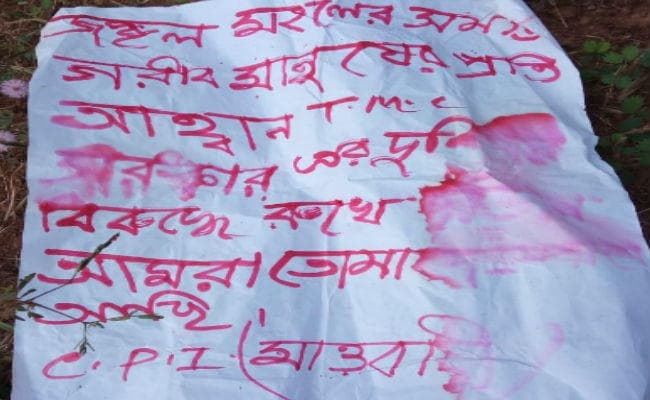 জঙ্গল মহলের সমস্ত
গরীব মানুষের প্রতি
আহ্বান T.M.C
সরকার এর দুর্নি
বিরুদ্ধে রুখে
আমরা তোমা
আছি
C.P.I (মাওবাদি